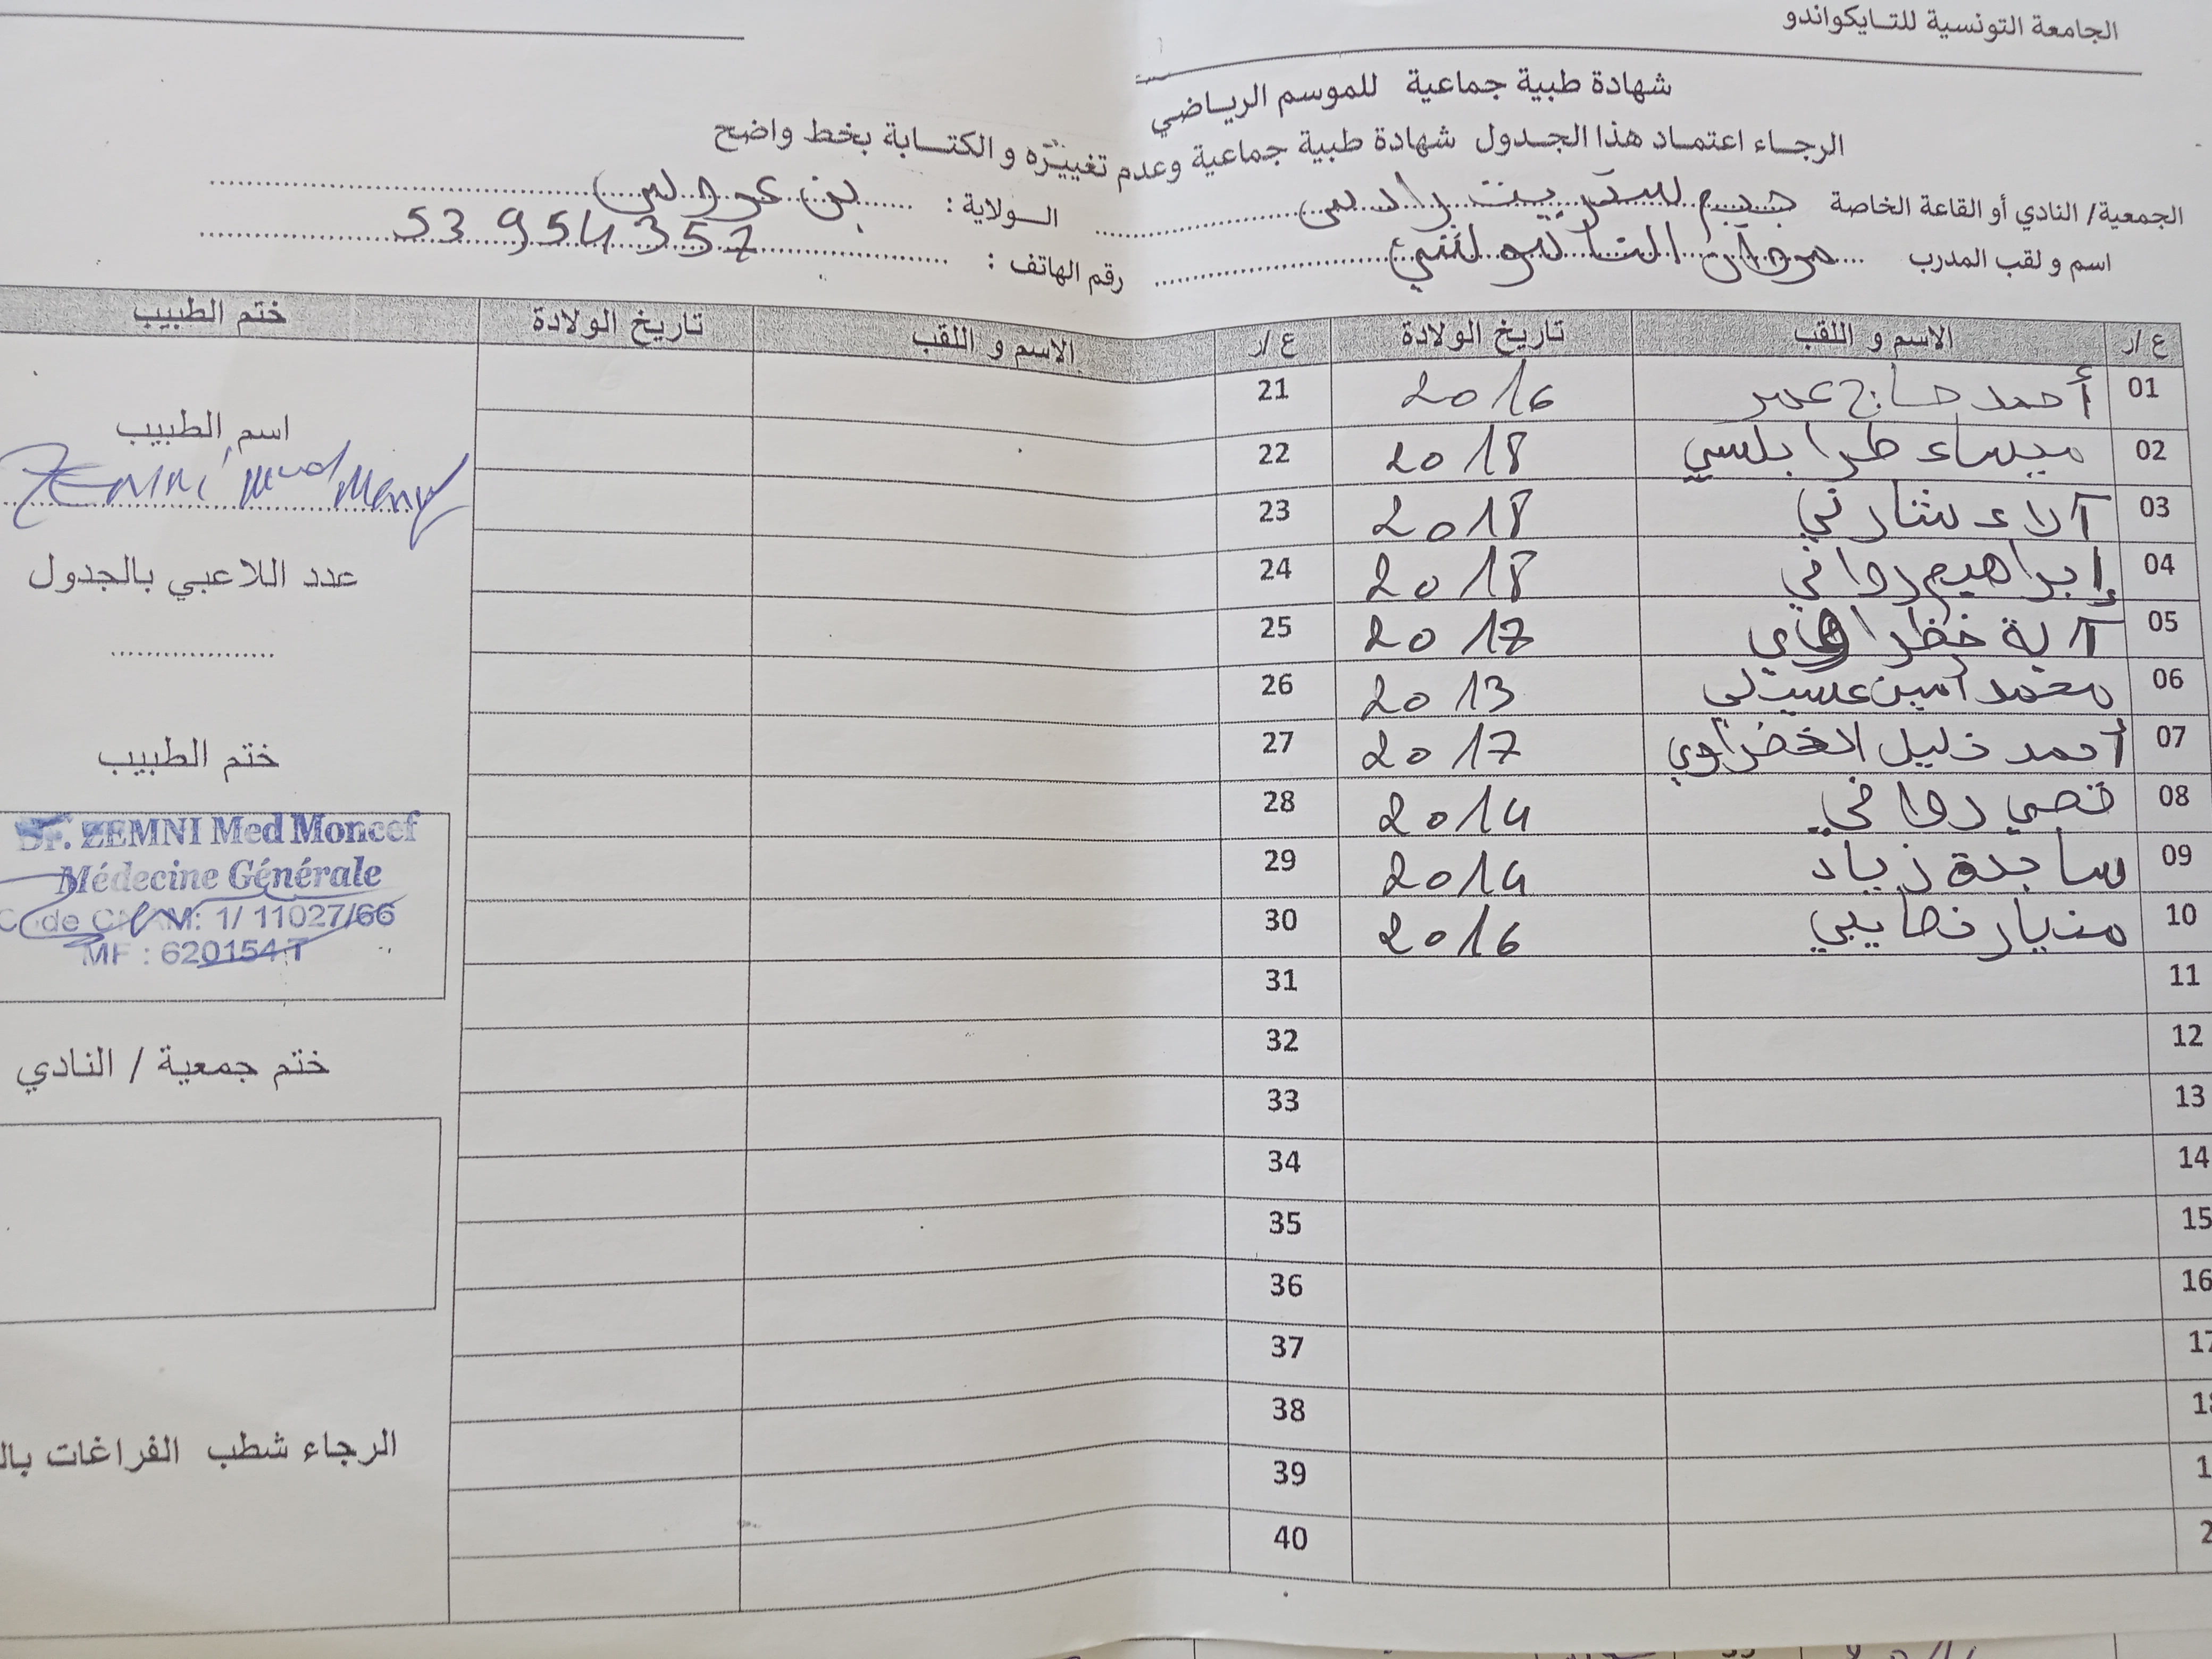 الجامعة التونسية للتايكواندو
شهادة طبية جماعية للموسم الرياضي
الرجاء اعتماد هذا الجدول شهادة طبية جماعية وعدم تغييره و الكتابة بخط واضح
الجمعية/ النادي أو القاعة الخاصة جيم سنتر بيت رادس الولاية : بن عروس
اسم و لقب المدرب مروان رقم الهاتف : 53 954 357
ع /ر الاسم و اللقب تاريخ الولادة ع /ر الاسم و اللقب تاريخ الولادة ختم الطبيب
01 أحمد حاج عمر 2016 21
02 ميساء طرابلسي 2018 22
03 آلاء شارني 2018 23
04 إبراهيم روافي 2018 24
05 آية 2017 25
06 محمد أمين 2013 26
07 أحمد خليل الخضراوي 2017 27
08 قصي روافي 2014 28
09 ساجدة زياد 2014 29
10 2016 30
11 31
12 32
13 33
14 34
15 35
16 36
17 37
38
39
40
اسم الطبيب
ZEMNI Med Moncef
عدد اللاعبي بالجدول
ختم الطبيب
Dr. ZEMNI Med Moncef
Médecine Générale
Code CNAM: 1/ 11027/66
MF : 620154 T
ختم جمعية / النادي
الرجاء شطب الفراغات